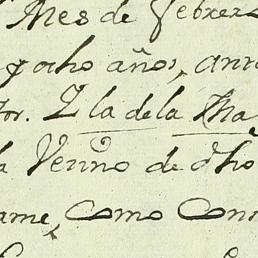 Mes de febrer
y ocho años, ann
or. Z la de la Tha
a Verino de dho
ame, como Conn